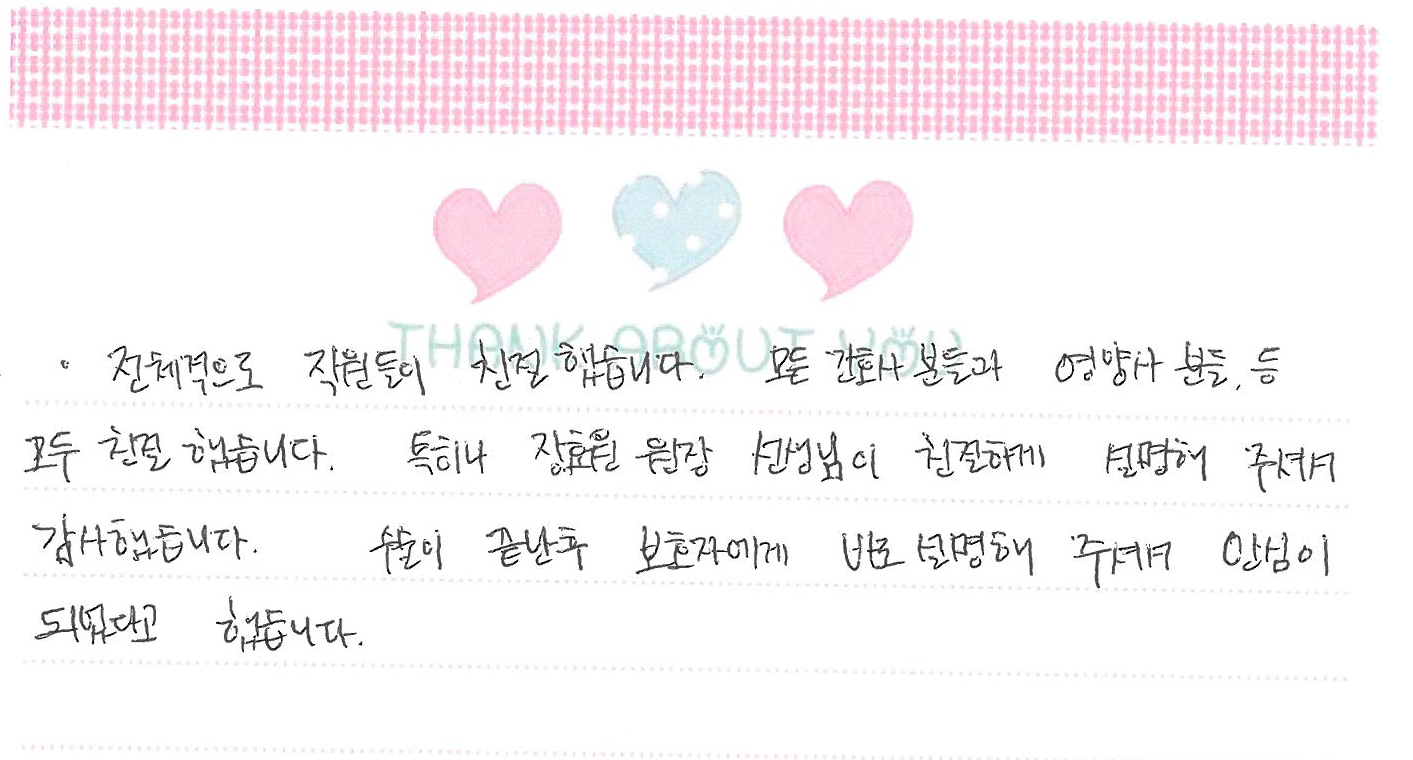 THANK ABOUT YOU
· 전체적으로 직원들이 친절 했습니다. 모든 간호사 분들과 영양사 분들, 등
모두 친절 했습니다. 특히나 장효원 원장 선생님이 친절하게 설명해 주셔서
감사했습니다. 수술이 끝난후 보호자에게 바로 설명해 주셔서 안심이
되었다고 했습니다.